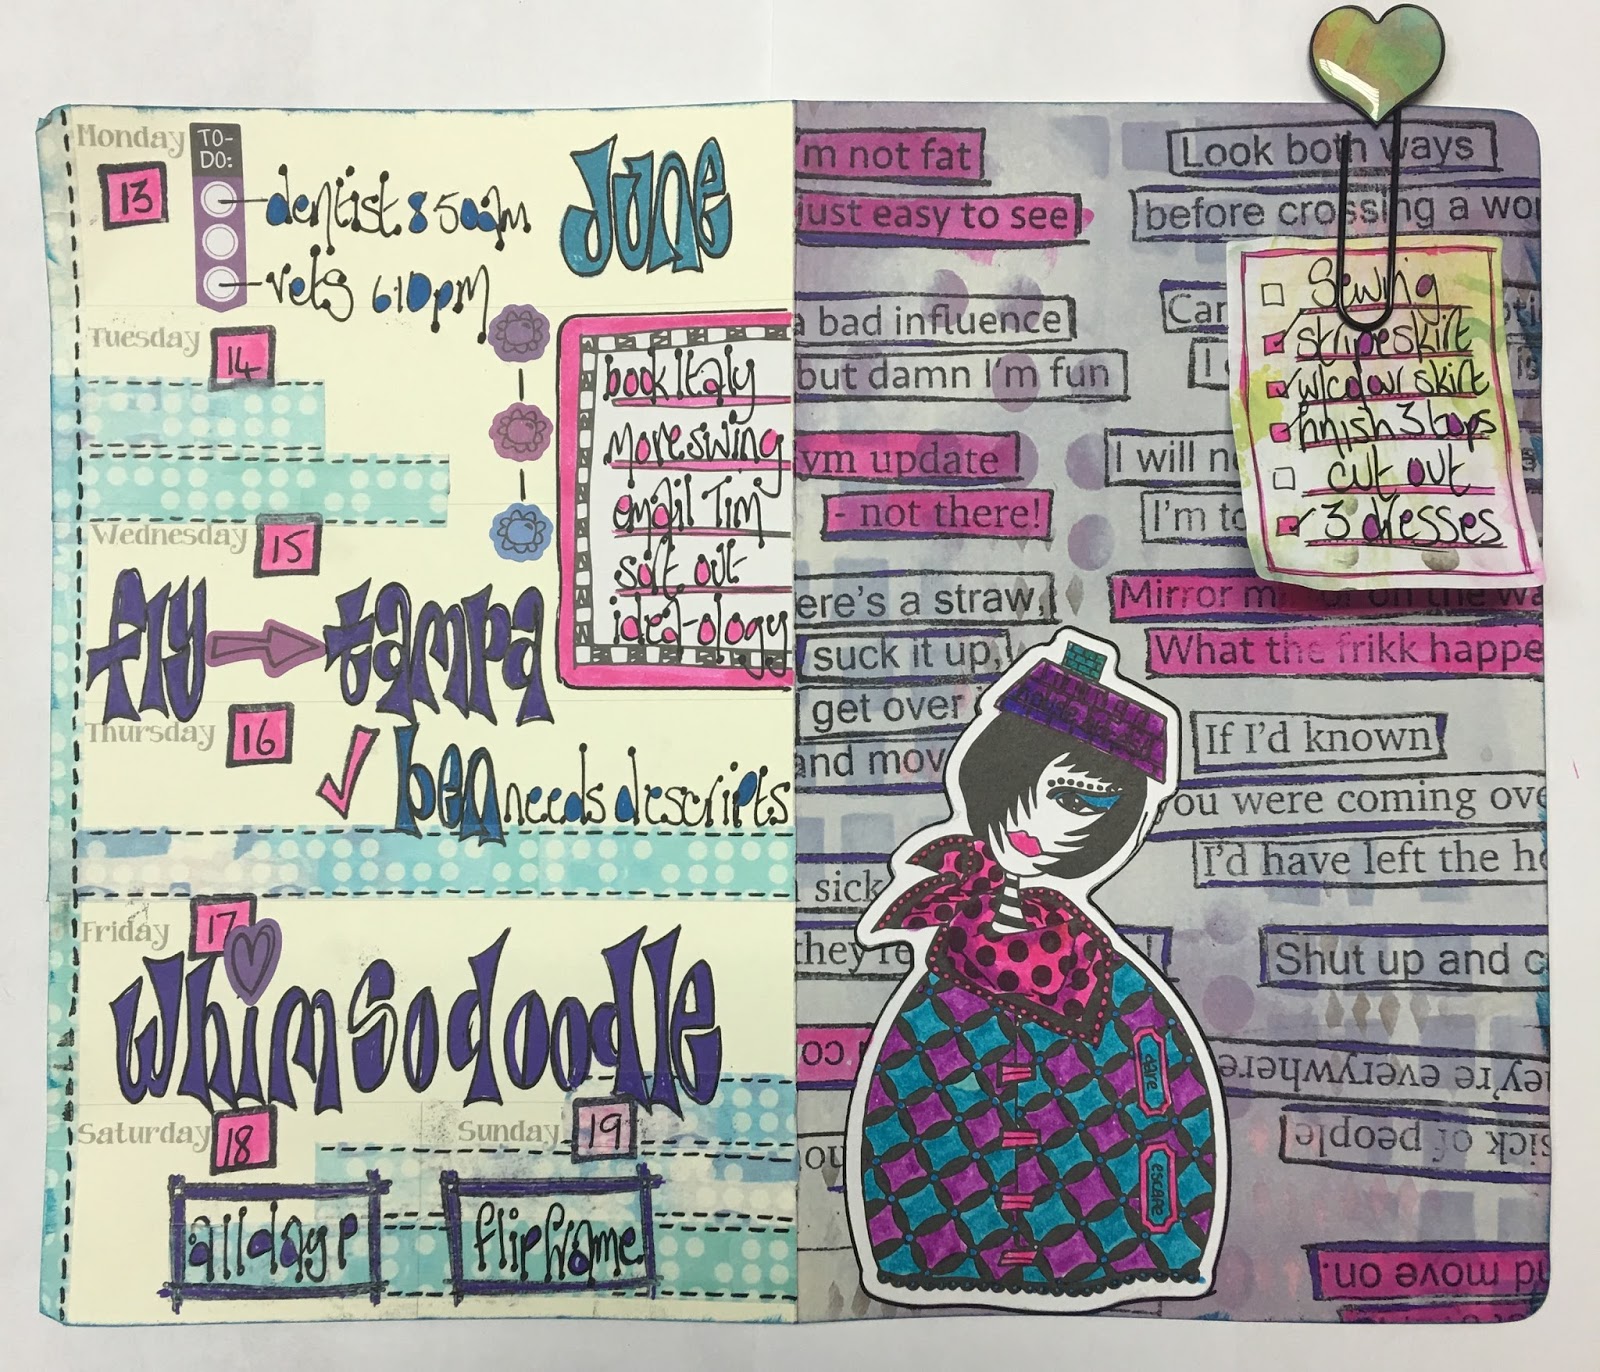 Monday
TO-
DO:
13
dentist 8 50am
vets 610pm
June
Tuesday
14
book Italy
more swing
email Tim
sort out
idea-ology
Wednesday
15
fly
tampa
Thursday
16
ben needs descripts
Friday
17
whimsodoodle
Saturday
18
all day p
Sunday
19
flip frame
'm not fat
just easy to see
a bad influence
but damn I'm fun
ym update
- not there!
ere's a straw,
suck it up,
get over
and mov
sick
they're
Look both ways
before crossing a wo
Can
I
I will n
I'm to
Sewing
stripe skirt
w/colour skirt
finish 3 tops
cut out
3 dresses
Mirror m on the wa
What the frikk happe
If I'd known
you were coming ove
I'd have left the ho
Shut up and c
co
ey're everywhere
sick of people
no
nd move on.
dare
escape